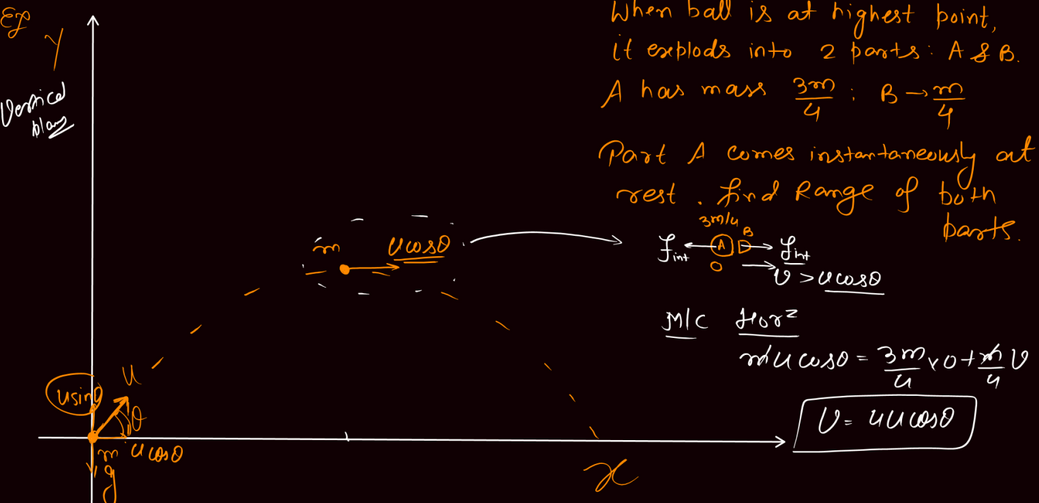 Ex
When ball is at highest point,
it explods into 2 parts: A & B.
A has mass 3m/4 ; B → m/4
Part A comes instantaneously at
rest. find Range of both
parts.
Y
Vertical
plane
m
ucosθ
3m/4
A
B
fint
fint
0
v > ucosθ
M/C Horz
mucosθ = 3m/4 x 0 + m/4 v
v = 4ucosθ
usinθ
u
θ
m
ucosθ
g
x